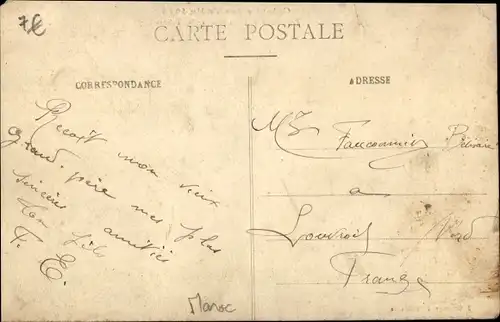 7€
CARTE POSTALE
CORRESPONDANCE
ADRESSE
Reçoit mon vieux
grand père mes plus
sincères amitiés
Ton fils
F. E.
Mr Fauconnier
a
Louvroil Nord
France
Maroc